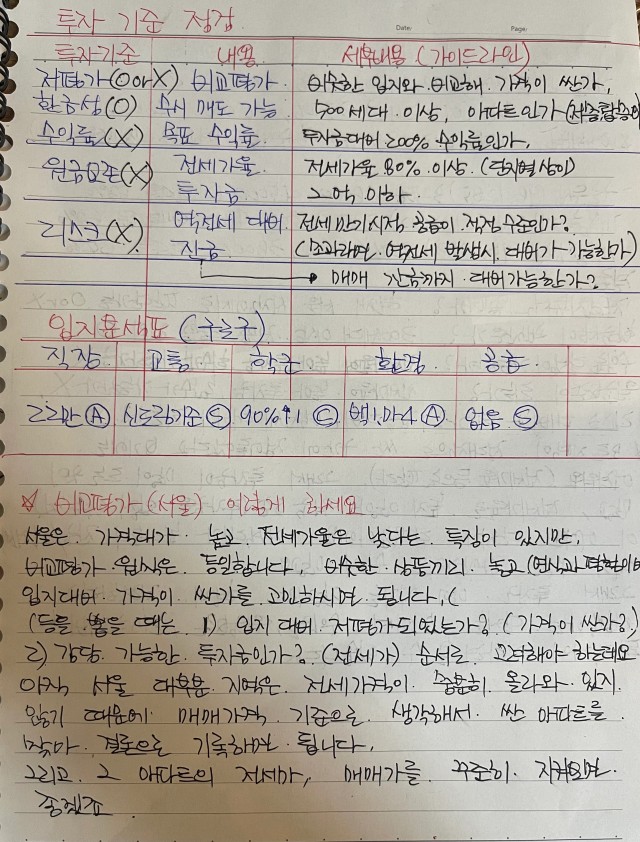 투자 기준 점검
Date: Page:
투자기준 내용 세부내용 (가이드라인)
저평가(O or X) 비교평가 비슷한 입지와 비교해 가격이 싼가,
환금성(O) 수시 매도 가능 500세대 이상, 아파트인가
수익률(X) 목표 수익률 투자금대비 200% 수익률인가,
원금보존(X) 전세가율 전세가율 80% 이상. (단지별 상이)
투자금 2억 이하.
리스크(X) 역전세 대비 전세만기시점 공급이 적정 수준인가?
잔금 (초과라면 역전세 발생시 대비가 가능한가)
매매 잔금까지 대비가능한가?
입지분석표 (구로구)
직장 교통 학군 환경 공급
22만 (A) 신도림기준 (S) 90%↑1 (C) 백1, 마4 (A) 없음 (S)
☆ 비교평가 (서울) 이렇게 하세요
서울은 가격대가 높고 전세가율은 낮다는 특징이 있지만,
비교평가 원칙은 동일합니다, 비슷한 상품끼리 놓고
입지대비 가격이 싼가를 고민하시면 됩니다, (
(등을 뽑을 때는 1) 입지 대비 저평가되었는가? (가격이 싼가?)
2) 감당 가능한 투자금인가? (전세가) 순서로 고려해야 하는데요
아직 서울 대부분 지역은 전세가격이 충분히 올라와 있지
않기 때문에 매매가격 기준으로 생각해서 싼 아파트를
찾아 결론으로 기록하면 됩니다,
그리고 그 아파트의 전세가, 매매가를 꾸준히 지켜보면
좋겠죠